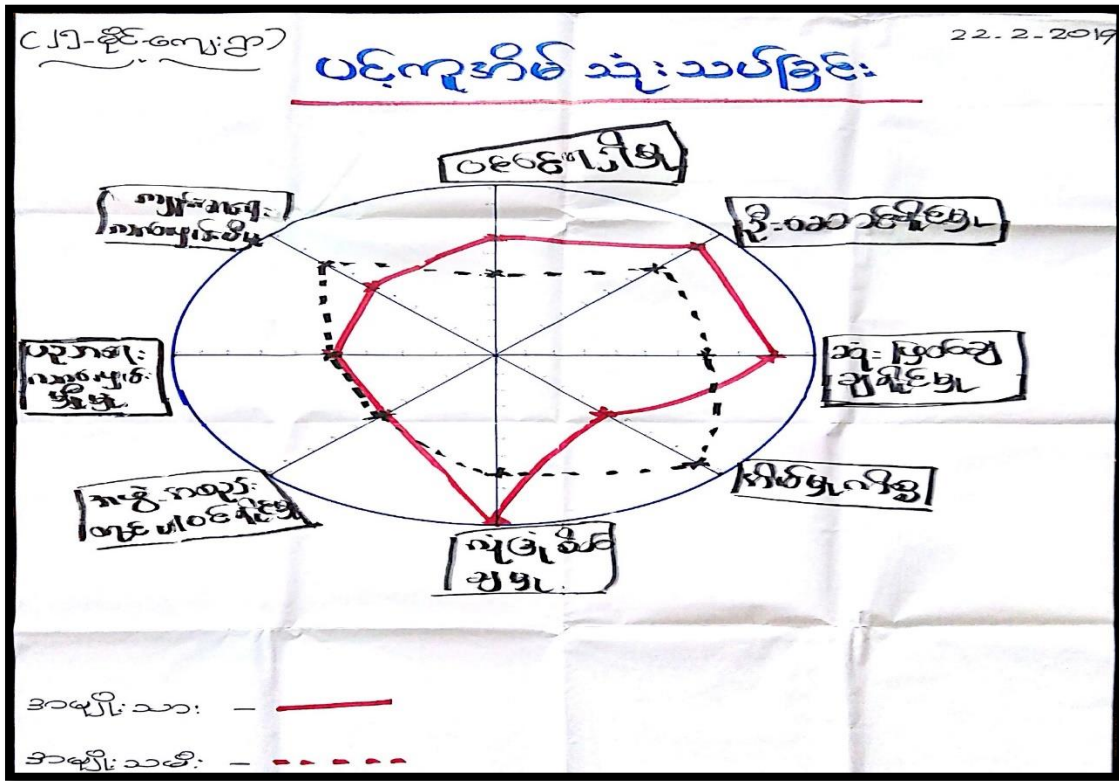 (၂၅-မိုင်-ကျေးရွာ)
22-2-2019
ပင့်ကူအိမ် သုံးသပ်ခြင်း
ဝင်ငွေရရှိမှု
ဦးဆောင်နိုင်မှု
ဆုံးဖြတ်ချက်
ချနိုင်မှု
အိမ်မှုကိစ္စ
လုံခြုံစိတ်
ချမှု
အဖွဲ့အစည်း
တွင် ပါဝင်နိုင်မှု
ပညာရေး
အခွင့်အလမ်း
ရရှိမှု
ကျန်းမာရေး
အမျိုးသား -
အမျိုးသမီး -